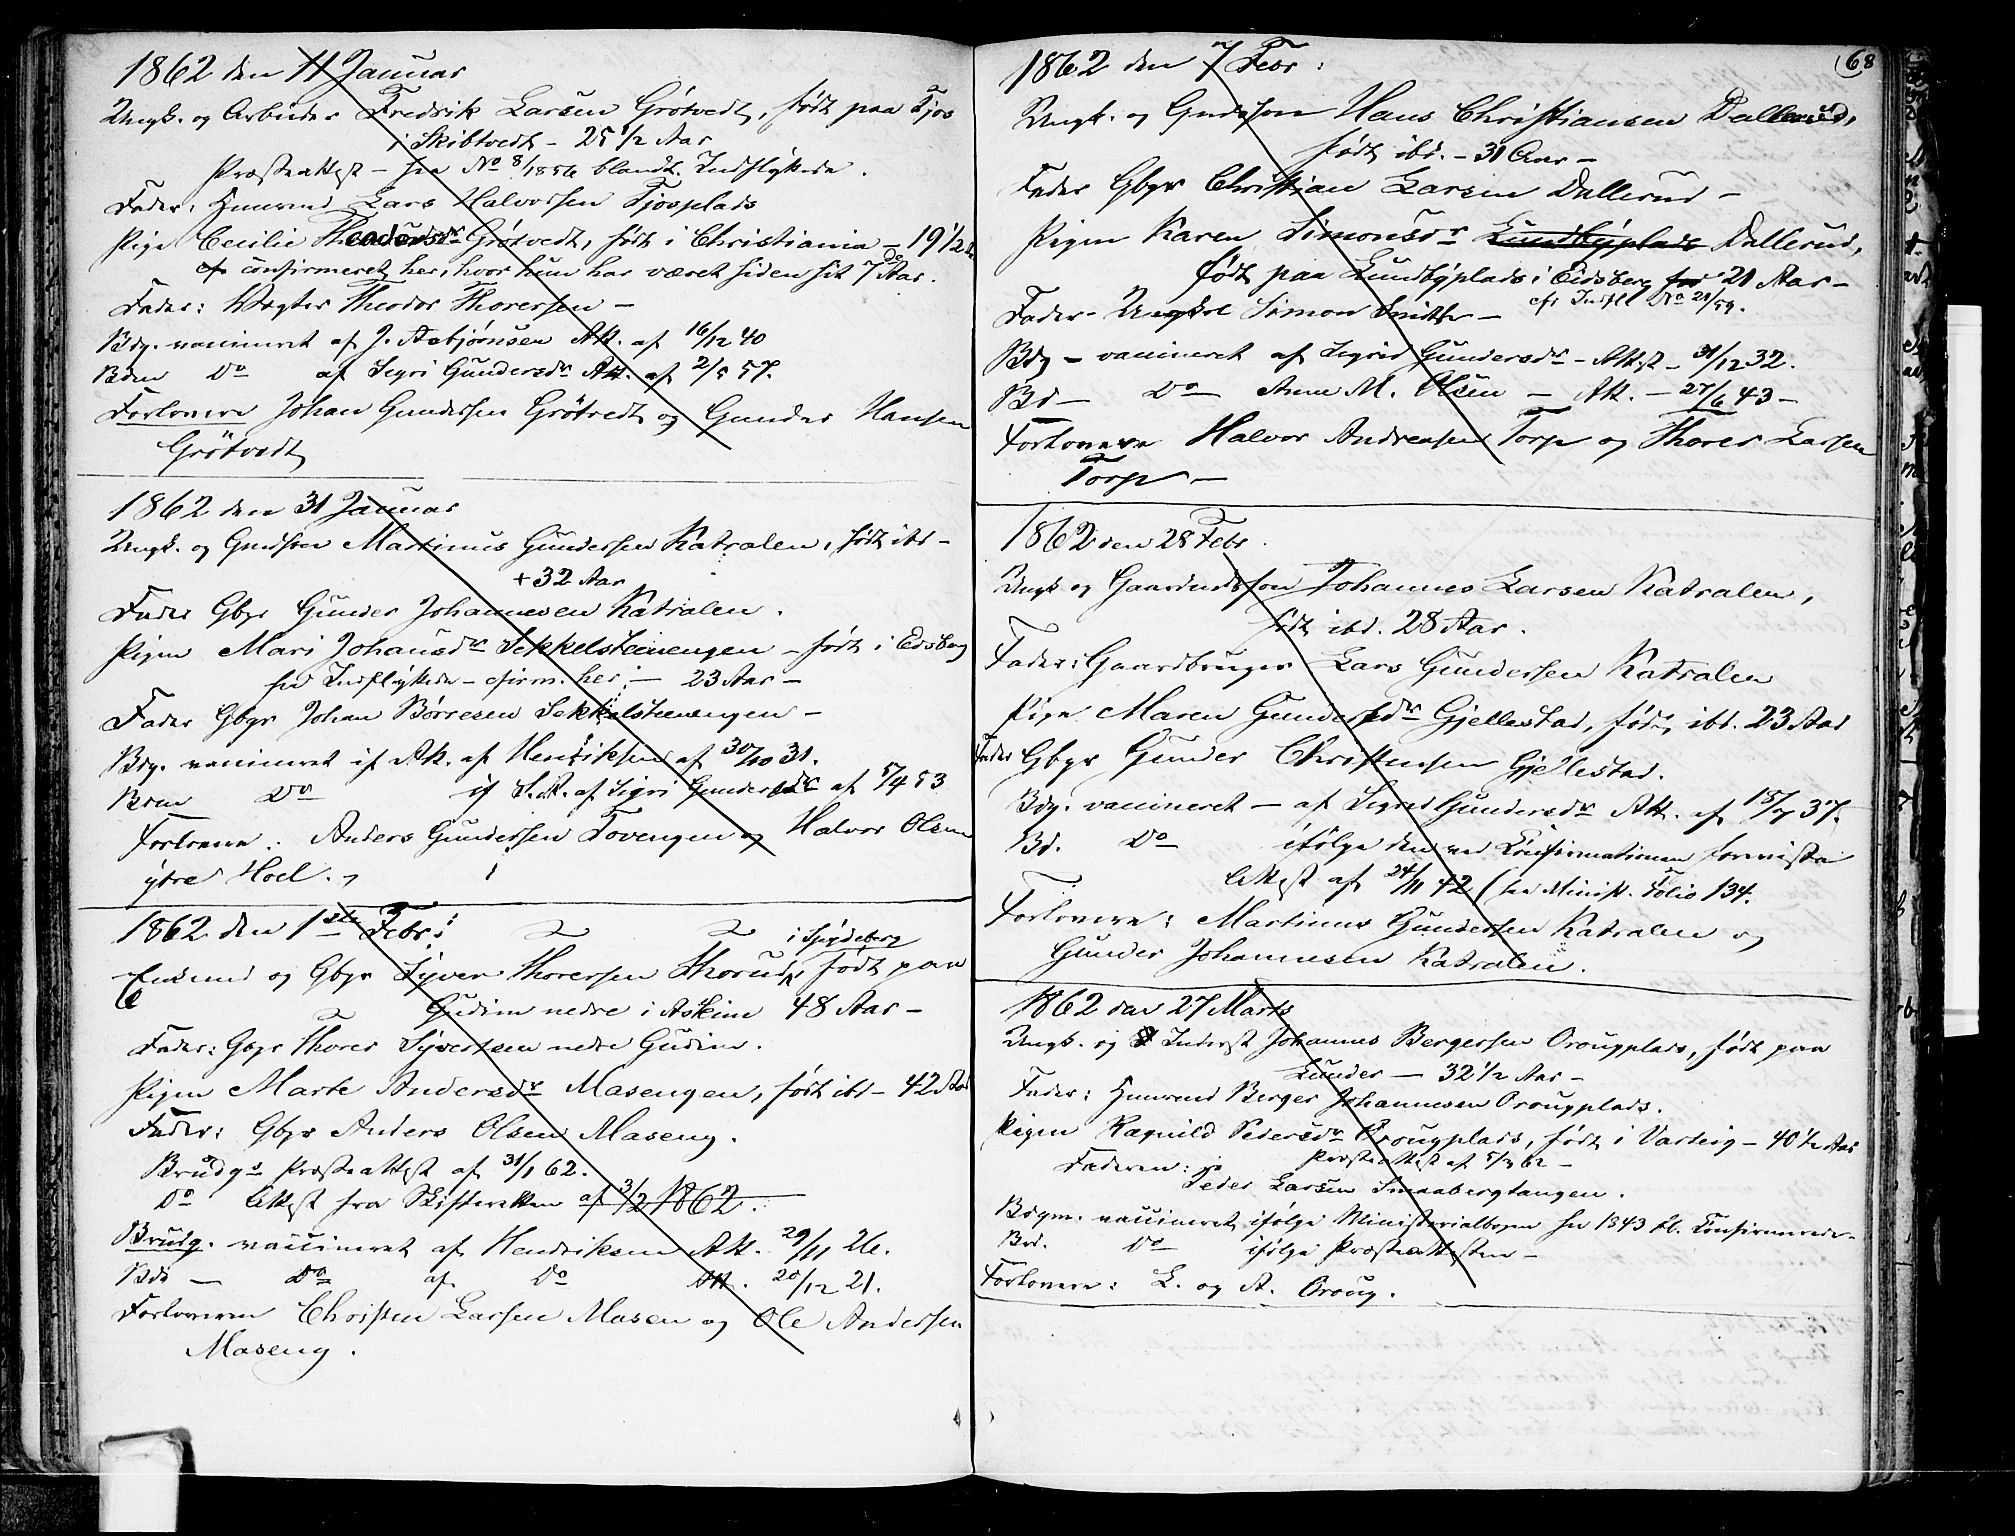 1862 den 11 Januar
Ungk. og Arbeider Fredrik Larsen Grötvedt, født paa Fjøs
i Skibtvedt - 25 1/2 Aar
Præsteattest - see No 8/1856 blandt Indflyttede.
Fader: Huusmd Lars Halvorsen Fjosplads
Pige Cecilie Theodorsdr Grötvedt, født i Christiania - 19 1/2 Aar
confirmeret her, hvor hun har været siden sit 7de Aar.
Fader: Vægter Theodor Thoresen -
Bdg. vaccineret af J. Asbjørnsen Att. af 16/12 40
Bden Do af Sigri Gundersdr Att. af 2/9 57.
Forlovere Johan Gundersen Grötvedt og Gunder Hansen
Grötvedt
1862 den 31 Januar
Ungk. og Gmdsøn Martinus Gundersen Katralen, født ibd -
+ 32 Aar
Fader Gbgr Gunder Johannesen Katralen.
Pigen Mari Johansdr Sekkelsteenengen - født i Edsberg
see Indflyttede - cfirm. her - 23 Aar -
Fader Gbgr Johan Börresen Sekkelsteenengen -
Bdg. vaccineret if Att. af Henriksen af 30/10 31.
Bden Do if S.A. af Sigri Gundersdr af 5/4 53
Forlovere: Anders Gundersen Tovengen og Halvor Olsen
ytre Hoel.
1862 den 1ste Febr:
i Spydeberg
Enkemd og Gbgr Syver Thoresen Thorud, født paa
Gudim nedre i Askim 48 Aar -
Fader: Gbgr Thorer Syvertsen nedre Gudim.
Pigen Marte Andersdr Masengen, født ibd - 42 Aar
Fader: Gbgr Anders Olsen Maseng.
Brudgs Præsteattest af 31/1 62.
Do Attest fra Skifteretten af 3/2 1862.
Brudg. vaccineret af Hendriksen Att. 29/11 26.
Bds - Do af Do Att. 20/12 21.
Forloveren Christen Larsen Masen og Ole Andersen
Maseng.
68
1862 den 7 Febr:
Ungk. og Gmdssøn Hans Christiansen Dallerud,
født ibd. - 31 Aar -
Fader Gbgr Christian Larsen Dallerud -
Pigen Karen Simonsdr Lundbyplads Dallerud,
født paa Lundbyplads i Eidsberg 21 Aar -
Fader - Ungkrl Simon Smith - cfr Indfl No 21/59.
Bdg - vaccineret af Sigrid Gundersdr - Attest - 31/12 32.
Bd - Do Anne M. Olsen - Att. - 27/6 43 -
Forlovere Halvor Andreasen Torp og Thorer Larsen
Torp -
1862 den 28 Febr.
Ungk og Gaardmdssøn Johannes Larsen Katralen,
født ibd. 28 Aar.
Fader: Gaardbruger Lars Gundersen Katralen
Pige Maren Gundersdr Gjellestad, født ibd. 23 Aar
Fader Gbgr Gunder Christensen Gjellestad.
Bdg. vaccineret - af Sigrid Gundersdr Att. af 15/7 37.
Bd. Do ifölge den ved Confirmationen foreviste
Attest af 24/11 42 (see Minist. Folio 134.
Forlovere: Martinus Gundersen Katralen og
Gunder Johannesen Katralen.
1862 den 27 Marts
Ungk. og Inderst Johannes Bergersen Orougplads, født paa
Lunder - 32 1/2 Aar -
Fader: Huusmd Berger Johannesen Orougplads.
Pigen Ragnild Pedersdr Orougplads, født i Varteig - 40 1/2 Aar
Præsteattest af 5/3 62 -
Faderen: Peder Larsen Smaabergtangen.
Bdgm. vaccineret ifölge Ministerialbogen see 1843 bl. Confirmerede.
Brd. Do ifölge Præsteattesten -
Forlovere: L. og A. Oroug.